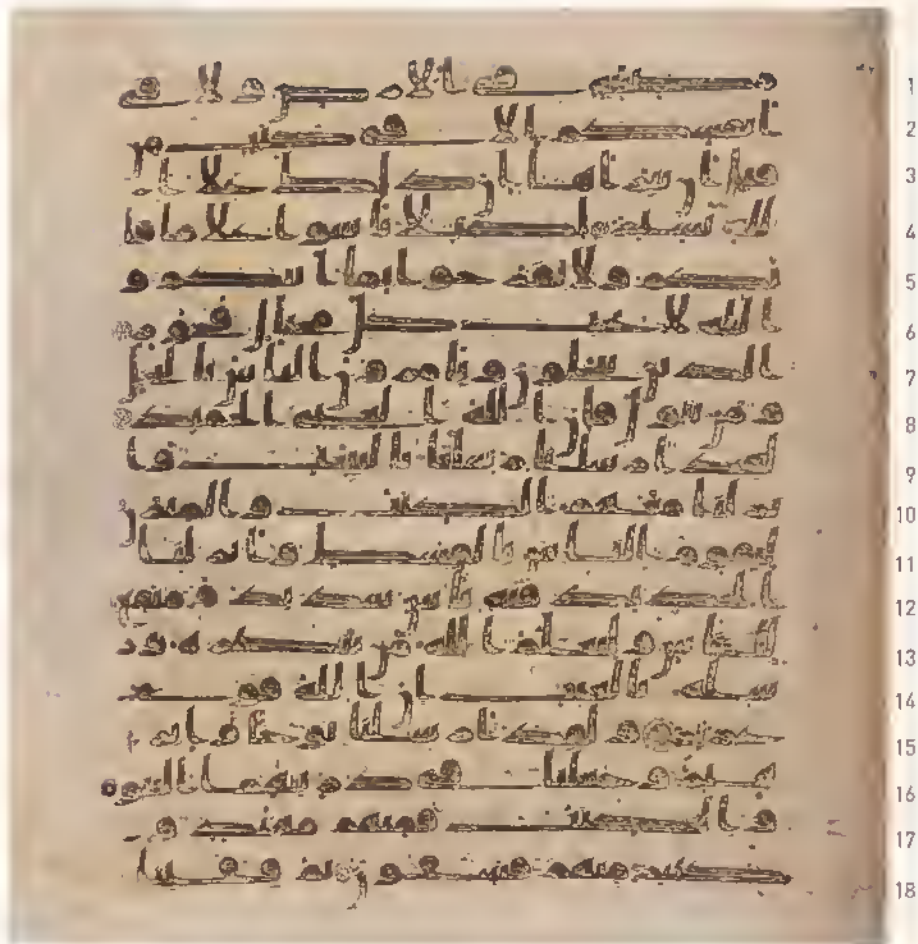 مصيبة في الارض ولا في 1
انفسكم الا في كتب من 2
قبل ان نبراها ان ذلك على ا 3
لله يسير لكيلا تاسوا على ما فا 4
تكم ولا تفرحوا بما اتيكم و 5
الله لا يحب كل مختال فخور 6
الذين يبخلون ويامرون الناس بالبخل 7
ومن يتول فان الله هو الغني الحميد 8
لقد ارسلنا رسلنا بالبينت وا 9
نزلنا معهم الكتب والميزن 10
ليقوم الناس بالقسط وانزلنا 11
الحديد فيه باس شديد ومنفع 12
للناس وليعلم الله من ينصره و 13
رسله بالغيب ان الله قوي عز 14
يز ولقد ارسلنا نوحا وابر 15
هيم وجعلنا في ذريتهما النبو 16
ة والكتب فمنهم مهتد و 17
كثير منهم فسقون ثم قفينا 18